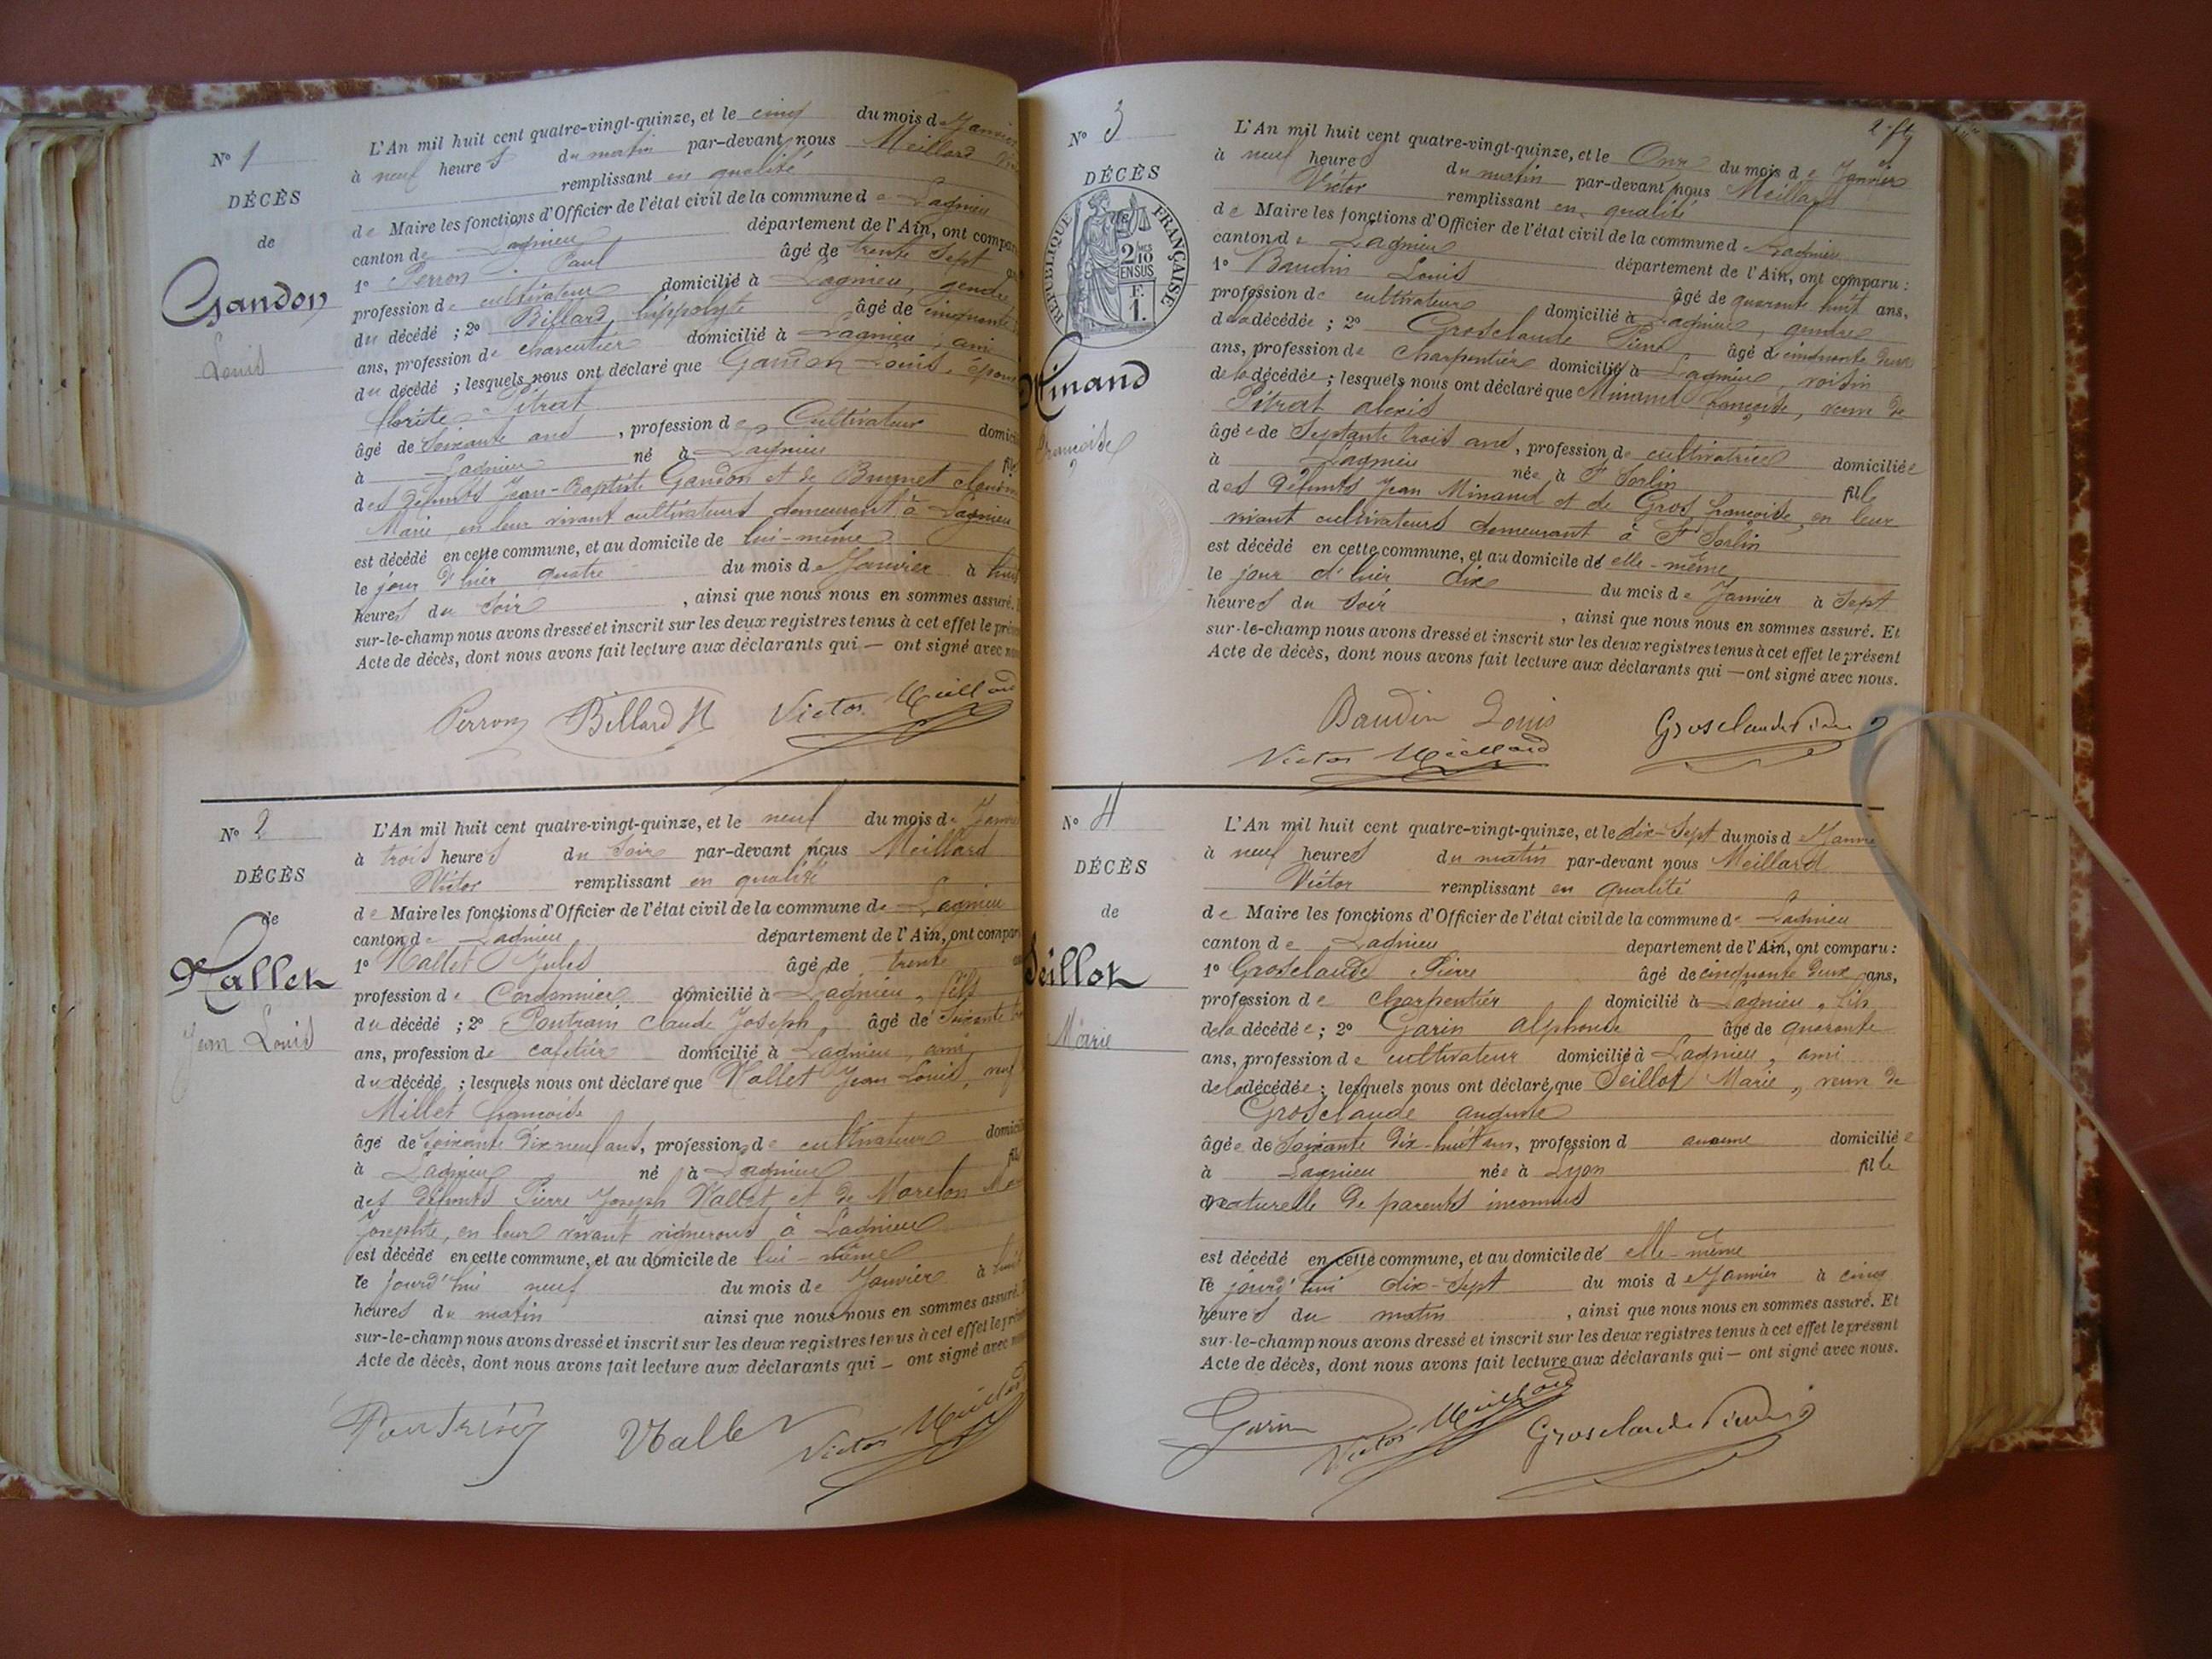 N° 1
DÉCÈS
de
Gandon
Louis
L'An mil huit cent quatre-vingt-quinze, et le cinq du mois de Janvier
à neuf heures du matin par-devant nous Meillard
remplissant en qualité
de Maire les fonctions d'Officier de l'état civil de la commune de Lagnieu
canton de Lagnieu département de l'Ain, ont compar
1° Perron Paul âgé de trente Sept
profession de cultivateur domicilié à Lagnieu, gendre
du décédé ; 2° Billard hippolyte âgé de cinquante
ans, profession de charcutier domicilié à Lagnieu, ami
du décédé ; lesquels nous ont déclaré que Gandon Louis, époux
Pitrat
âgé de Soixante ans, profession de Cultivateur domici
à Lagnieu né à Lagnieu fils
des défunts Jean-Baptiste Gandon et de Brugnet
Marie, en leur vivant cultivateurs demeurant à Lagnieu
est décédé en cette commune, et au domicile de lui-même
le jour d'hier quatre du mois de Janvier à huit
heures du Soir, ainsi que nous nous en sommes assuré.
sur-le-champ nous avons dressé et inscrit sur les deux registres tenus à cet effet le prés
Acte de décès, dont nous avons fait lecture aux déclarants qui — ont signé avec n
Perron Billard H Victor Meillard
N° 2
DÉCÈS
de
Vallet
Jean Louis
L'An mil huit cent quatre-vingt-quinze, et le neuf du mois de Janvi
à trois heures du Soir par-devant nous Meillard
Victor remplissant en qualité
de Maire les fonctions d'Officier de l'état civil de la commune de Lagnieu
canton de Lagnieu département de l'Ain, ont compar
1° Vallet Jules âgé de trente
profession de Cordonnier domicilié à Lagnieu, fils
du décédé ; 2° Claude Joseph, âgé de Soixante
ans, profession de cafetier domicilié à Lagnieu, ami
du décédé ; lesquels nous ont déclaré que Vallet Jean Louis, veuf
Millet françoise
âgé de Soixante dix neuf ans, profession de cultivateur domicili
à Lagnieu né à Lagnieu fils
des défunts Pierre Joseph Vallet et de
Josephte, en leur vivant vignerons à Lagnieu
est décédé en cette commune, et au domicile de lui-même
le jourd'hui neuf du mois de Janvier à huit
heures du matin ainsi que nous nous en sommes assuré.
sur-le-champ nous avons dressé et inscrit sur les deux registres tenus à cet effet le prés
Acte de décès, dont nous avons fait lecture aux déclarants qui — ont signé avec
Vallet Victor Meillard
N° 3
DÉCÈS
RÉPUBLIQUE FRANÇAISE
2/10 EN SUS
F. 1.
Minand
Françoise
L'An mil huit cent quatre-vingt-quinze, et le Onze du mois de Janvier
à neuf heures du matin par-devant nous Meillard
Victor remplissant en qualité
de Maire les fonctions d'Officier de l'état civil de la commune de Lagnieu
canton de Lagnieu département de l'Ain, ont comparu :
1° Baudin Louis âgé de quarante huit ans,
profession de cultivateur domicilié à Lagnieu, gendre
de la décédée ; 2° Grosclaude Pierre âgé de cinquante deux
ans, profession de Charpentier domicilié à Lagnieu, voisin
de la décédée ; lesquels nous ont déclaré que Minand françoise, veuve de
Pitrat alexis
âgée de Septante trois ans, profession de cultivatrice domiciliée
à Lagnieu née à St Sorlin fille
des défunts Jean Minand et de Gros françoise, en leur
vivant cultivateurs demeurant à St Sorlin
est décédé en cette commune, et au domicile de elle-même
le jour d'hier dix du mois de Janvier à Sept
heures du Soir, ainsi que nous nous en sommes assuré. Et
sur-le-champ nous avons dressé et inscrit sur les deux registres tenus à cet effet le présent
Acte de décès, dont nous avons fait lecture aux déclarants qui — ont signé avec nous.
Baudin Louis Grosclaude Pierre
Victor Meillard
N° 4
DÉCÈS
de
Seillot
Marie
L'An mil huit cent quatre-vingt-quinze, et le dix-Sept du mois de Janvie
à neuf heures du matin par-devant nous Meillard
Victor remplissant en qualité
de Maire les fonctions d'Officier de l'état civil de la commune de Lagnieu
canton de Lagnieu département de l'Ain, ont comparu :
1° Grosclaude Pierre âgé de cinquante deux ans,
profession de charpentier domicilié à Lagnieu, fils
de la décédée ; 2° Garin alphonse âgé de quarante
ans, profession de cultivateur domicilié à Lagnieu, ami
de la décédée ; lesquels nous ont déclaré que Seillot Marie, veuve de
Grosclaude
âgée de Soixante dix-huit ans, profession d aucune domiciliée
à Lagnieu née à Lyon fille
naturelle de parents inconnus
est décédé en cette commune, et au domicile de elle-même
le jourd'hui dix-Sept du mois de Janvier à cinq
heures du matin, ainsi que nous nous en sommes assuré. Et
sur-le-champ nous avons dressé et inscrit sur les deux registres tenus à cet effet le présent
Acte de décès, dont nous avons fait lecture aux déclarants qui — ont signé avec nous.
Garin Victor Meillard Grosclaude Pierre